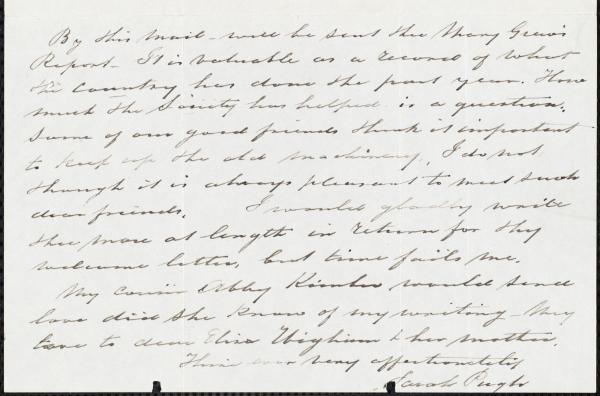 By this mail - will be sent thee Mary Grew's
Report - It is valuable as a record of what
the Country has done the past year. How
much the Society has helped is a question.
Some of our good friends think it important
to keep up the old machinery, I do not
though it is always pleasant to meet such
dear friends. I would gladly write
thee more at length in return for thy
welcome letter, but time fails me.
My cousin Abby Kimber would send
love did she know of my writing - My
love to dear Eliza Wigham & her mother.
Thine ever very affectionately
Sarah Pugh